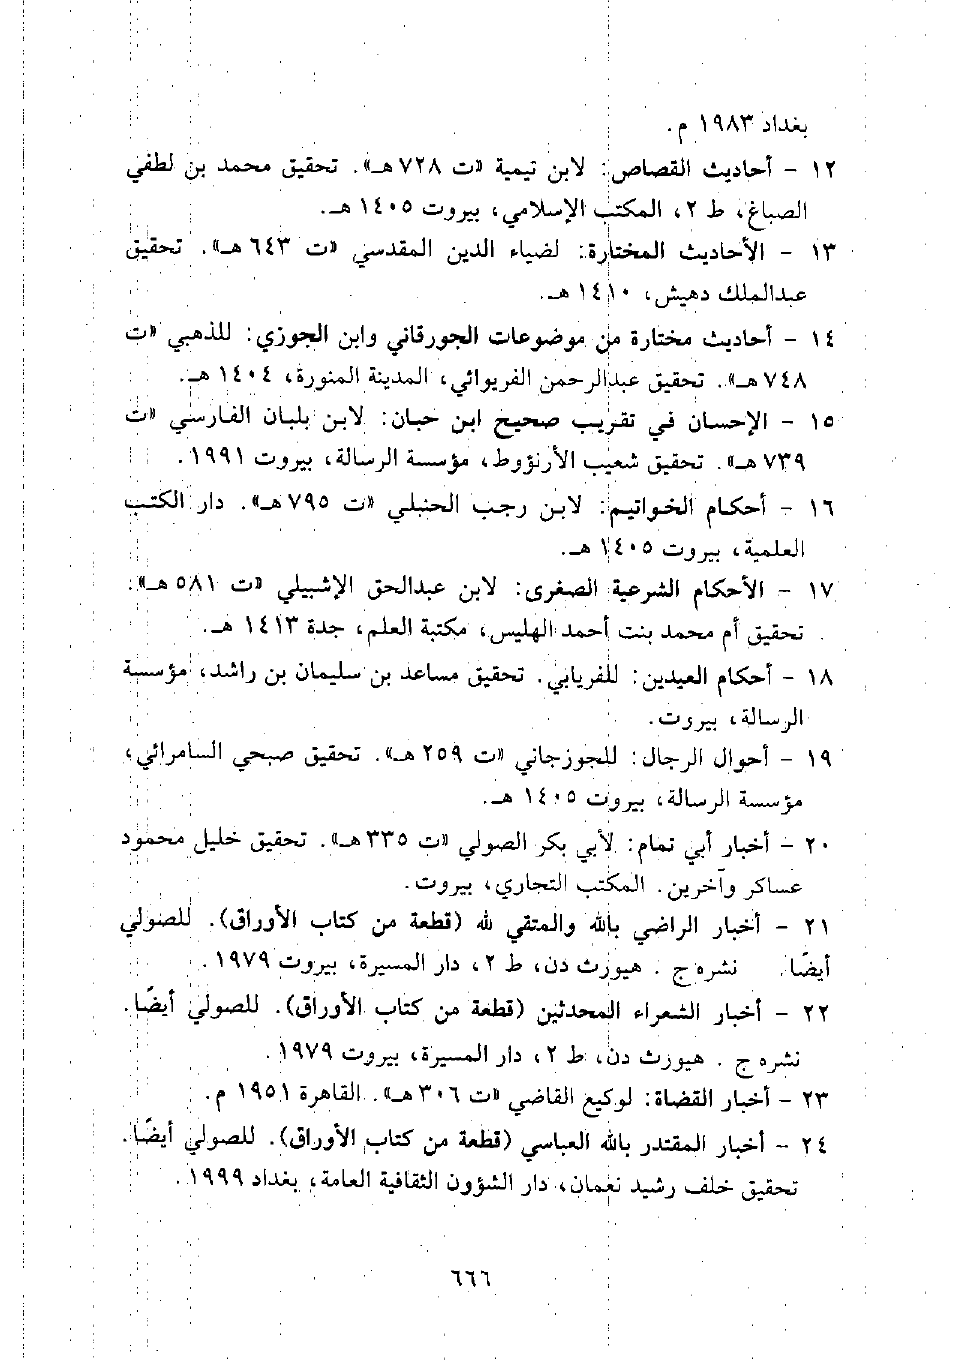 بغداد ١٩٨٣ م.
١٢ - أحاديث القصاص: لابن تيمية «ت ٧٢٨ هـ». تحقيق محمد بن لطفي
الصباغ، ط ٢، المكتب الإسلامي، بيروت ١٤٠٥ هـ.
١٣ - الأحاديث المختارة: لضياء الدين المقدسي «ت ٦٤٣ هـ». تحقيق
عبدالملك دهيش، ١٤١٠ هـ.
١٤ - أحاديث مختارة من موضوعات الجورقاني وابن الجوزي: للذهبي «ت
٧٤٨ هـ». تحقيق عبدالرحمن الفريوائي، المدينة المنورة، ١٤٠٤ هـ.
١٥ - الإحسان في تقريب صحيح ابن حبان: لابن بلبان الفارسي «ت
٧٣٩ هـ». تحقيق شعيب الأرنؤوط، مؤسسة الرسالة، بيروت ١٩٩١.
١٦ - أحكام الخواتيم: لابن رجب الحنبلي «ت ٧٩٥ هـ». دار الكتب
العلمية، بيروت ١٤٠٥ هـ.
١٧ - الأحكام الشرعية الصغرى: لابن عبدالحق الإشبيلي «ت ٥٨١ هـ».
تحقيق أم محمد بنت أحمد الهليس، مكتبة العلم، جدة ١٤١٣ هـ.
١٨ - أحكام العيدين: للفريابي. تحقيق مساعد بن سليمان بن راشد، مؤسسة
الرسالة، بيروت.
١٩ - أحوال الرجال: للجوزجاني «ت ٢٥٩ هـ». تحقيق صبحي السامرائي،
مؤسسة الرسالة، بيروت ١٤٠٥ هـ.
٢٠ - أخبار أبي تمام: لأبي بكر الصولي «ت ٣٣٥ هـ». تحقيق خليل محمود
عساكر وآخرين. المكتب التجاري، بيروت.
٢١ - أخبار الراضي بالله والمتقي لله (قطعة من كتاب الأوراق). للصولي
أيضًا. نشره ج . هيورث دن، ط ٢، دار المسيرة، بيروت ١٩٧٩.
٢٢ - أخبار الشعراء المحدثين (قطعة من كتاب الأوراق). للصولي أيضًا.
نشره ج . هيورث دن، ط ٢، دار المسيرة، بيروت ١٩٧٩.
٢٣ - أخبار القضاة: لوكيع القاضي «ت ٣٠٦ هـ». القاهرة ١٩٥١ م.
٢٤ - أخبار المقتدر بالله العباسي (قطعة من كتاب الأوراق). للصولي أيضًا.
تحقيق خلف رشيد نعمان، دار الشؤون الثقافية العامة، بغداد ١٩٩٩.
٦٦٦